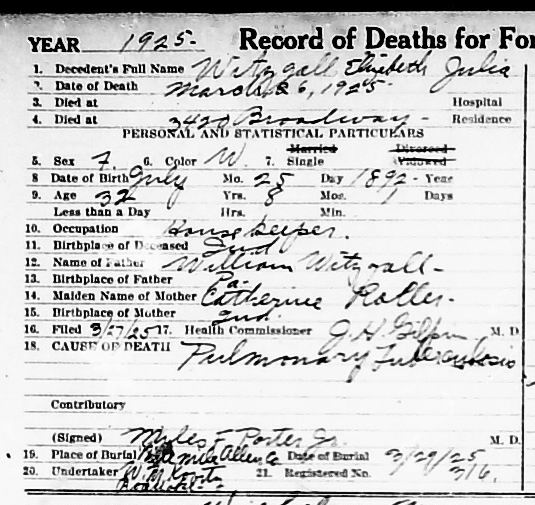 YEAR 1925- Record of Deaths for For
1. Decedent's Full Name Witzgall Elizabeth Julia
2. Date of Death March 26, 1925-
3. Died at Hospital
4. Died at 3420 Broadway- Residence
PERSONAL AND STATISTICAL PARTICULARS
Married Divorced
5. Sex F. 6. Color W. 7. Single Widowed
8 Date of Birth July Mo. 25 Day 1892- Year
9. Age 32 Yrs. 8 Mos. 1 Days
Less than a Day Hrs. Min.
10. Occupation Housekeeper.
11. Birthplace of Deceased Ind
12. Name of Father William Witzgall-
13. Birthplace of Father Pa-
14. Maiden Name of Mother Catherine Roller-
15. Birthplace of Mother Ind.
16. Filed 3/27/25 17. Health Commissioner J.H. Gilpin, M. D.
18. CAUSE OF DEATH Pulmonary Tuberculosis
Contributory
(Signed) Myles F Porter Jr. M. D.
19. Place of Burial Mile Allen Co Date of Burial 3/29/25
20. Undertaker W. M. 21. Registered No. 316.
Roanoke-